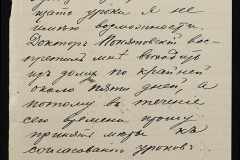 щать уроки я не
имею возможности
Докторъ Понятовскій вос-
претилъ мнѣ выходить
изъ дому по крайней
около пяти дней, а
потому въ теченіе
сего времени прошу
принять мѣры къ
согласованію уроковъ.